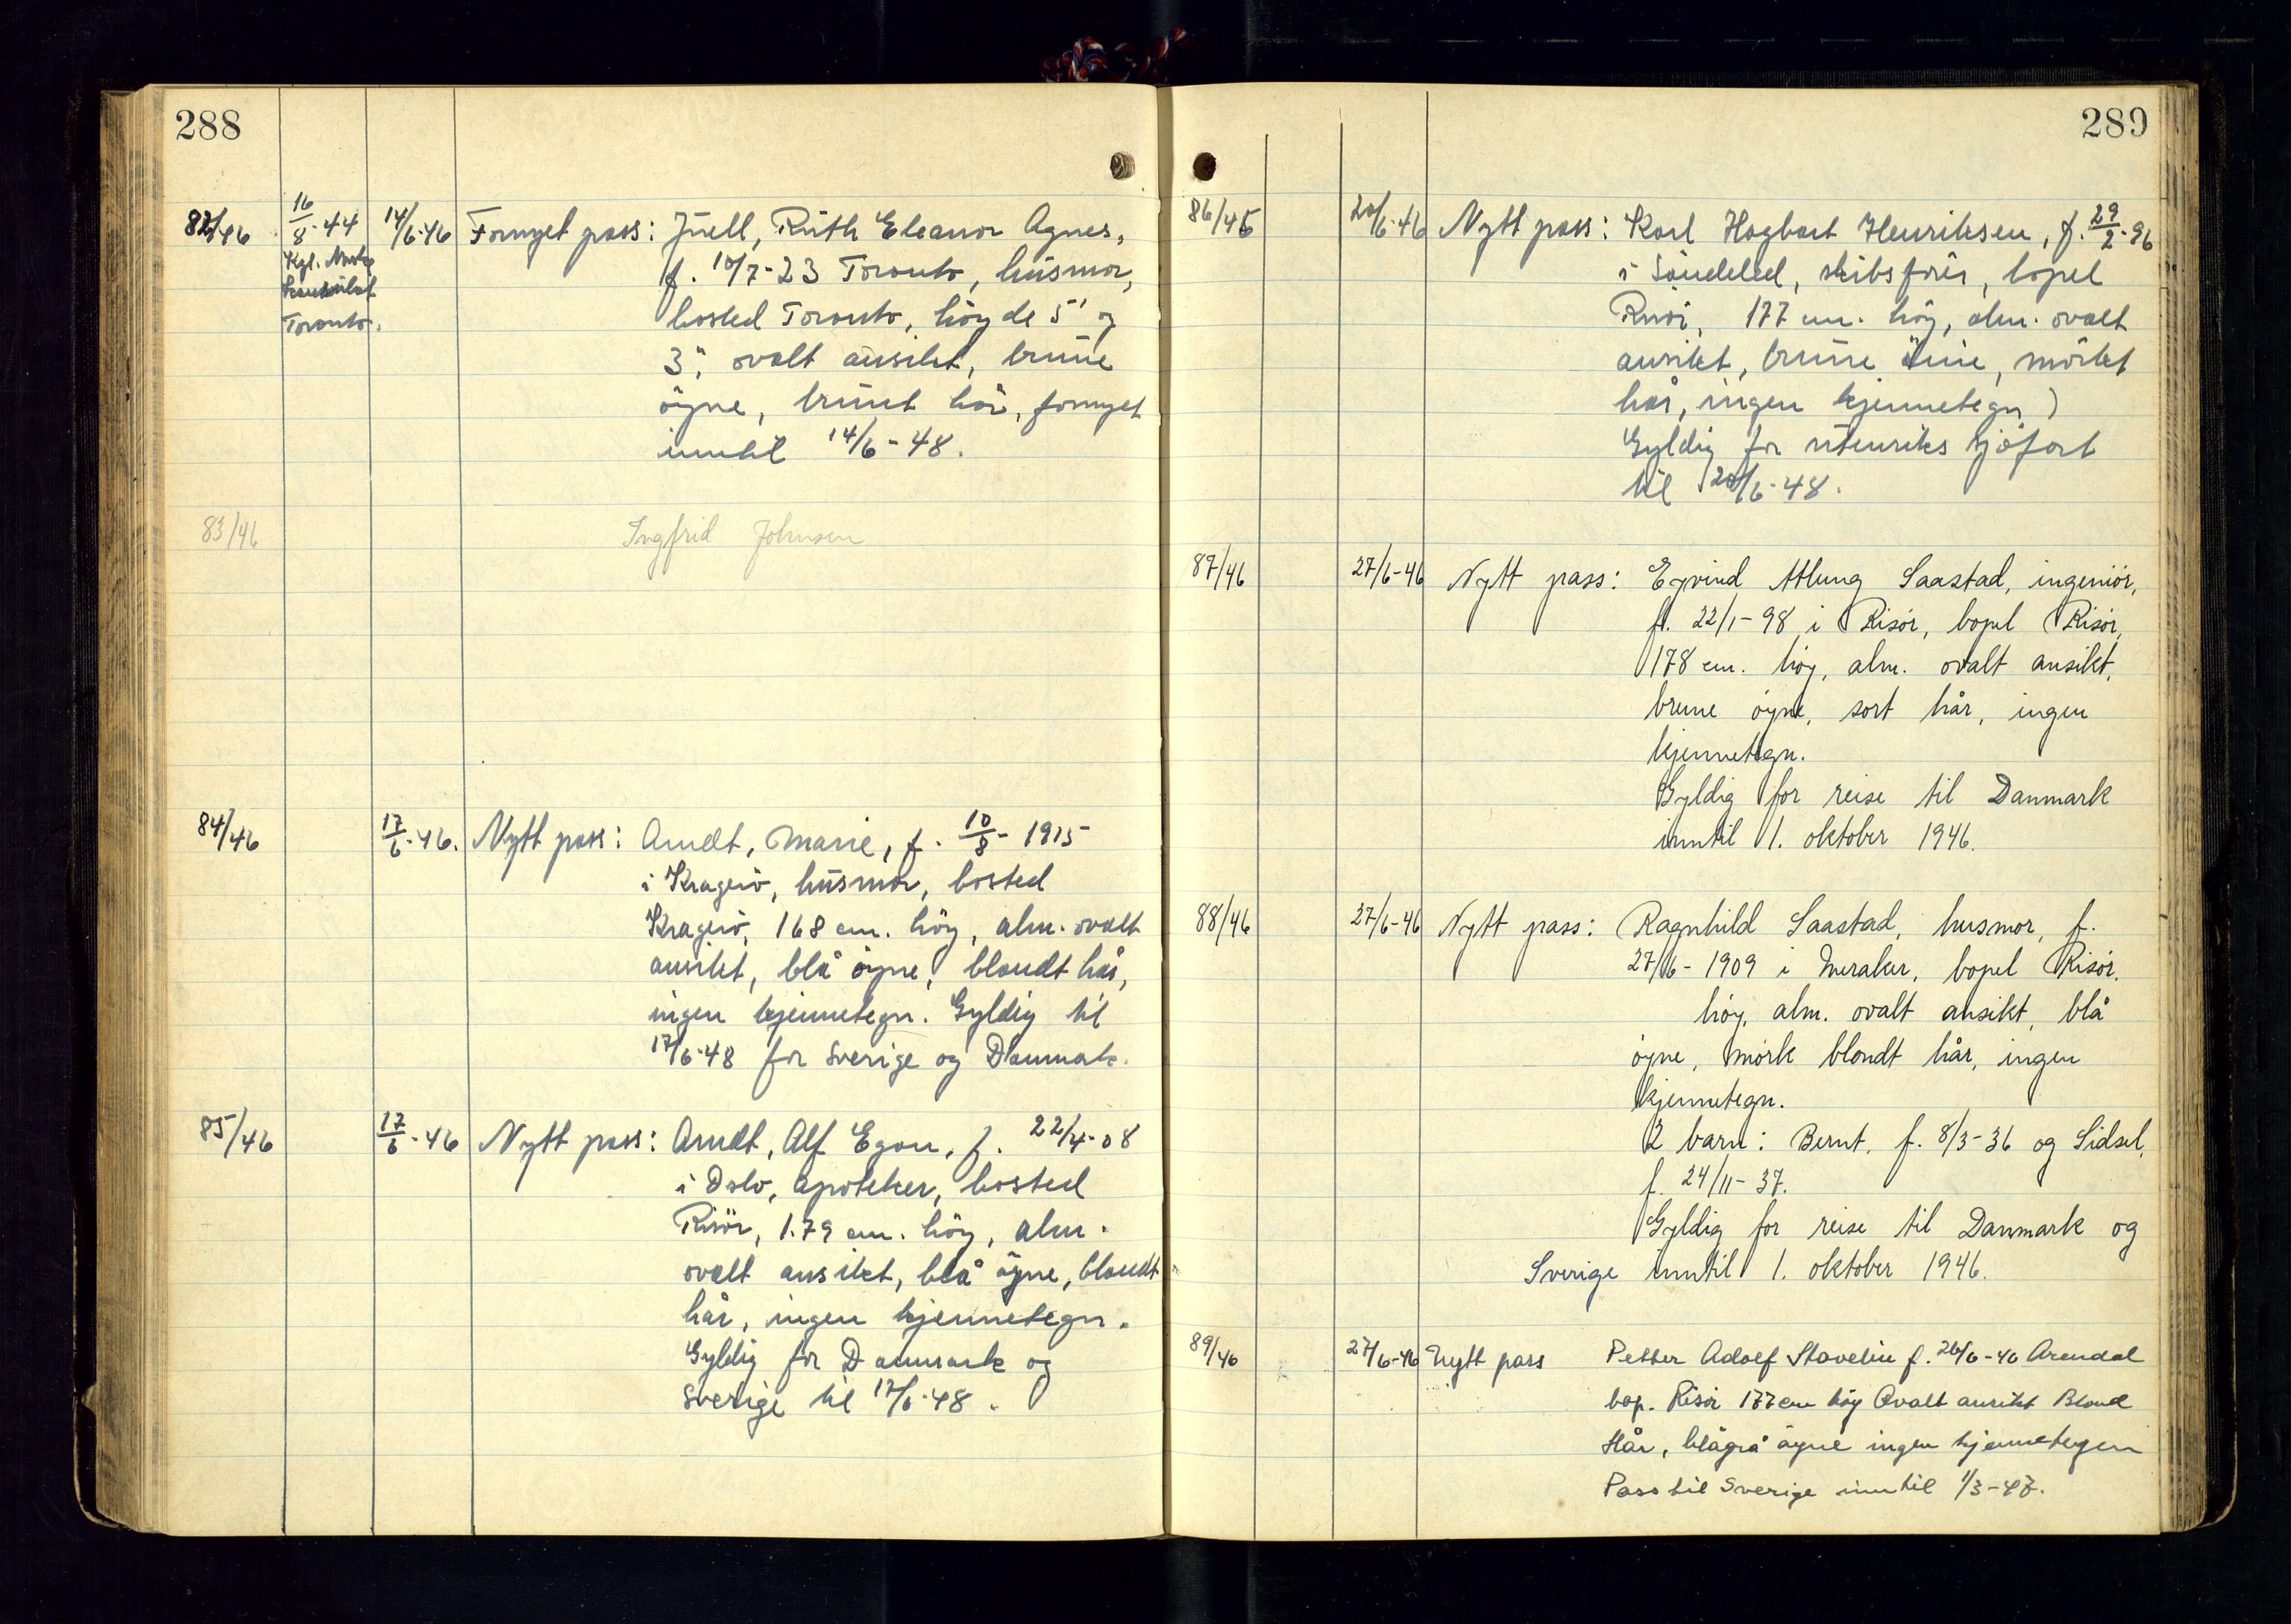 288
82/46 16/8-44 14/6-46 Fornyet pass: Juell, Ruth Eleanor Agnes,
Kgl. Norske
Konsulat
Toronto.
f. 10/7-23 Toronto, husmor,
bosted Toronto, höyde 5' og
3", ovalt ansikt, brune
öyne, brunt hår, fornyet
inntil 14/6-48.
83/46 Ingfrid Johnsen
84/46 17/6-46. Nytt pass: Arndt, Marie, f. 10/8-1915
i Kragerö, husmor, bosted
Kragerö, 168 cm. höy, alm. ovalt
ansikt, blå öyne, blondt hår,
ingen kjennetegn. Gyldig til
17/6-48 for Sverige og Danmark.
85/46 17/6-46 Nytt pass: Arndt, Alf Egon, f. 22/4-08
i Oslo, apoteker, bosted
Risör, 1.79 cm. höy, alm.
ovalt ansikt, blå öyne, blondt
hår, ingen kjennetegn.
Gyldig for Danmark og
Sverige til 17/6-48.
289
86/46 20/6-46 Nytt pass: Karl Hagbart Henriksen, f. 29/2-96
i Söndeled, skibsförer, bopel
Risör, 177 cm. höy, alm. ovalt
ansikt, brune öine, mörkt
hår, ingen kjennetegn)
Gyldig for utenriks sjöfart
til 20/6-48.
87/46 27/6-46 Nytt pass: Eyvind Atlung Saastad, ingeniör,
f. 22/1-98 i Risör, bopel Risör,
178 cm. höy, alm. ovalt ansikt,
brune öyne, sort hår, ingen
kjennetegn.
Gyldig for reise til Danmark
inntil 1. oktober 1946.
88/46 27/6-46 Nytt pass: Ragnhild Saastad, husmor, f.
27/6-1909 i Meraker, bopel Risör,
höy, alm. ovalt ansikt, blå
öyne, mörk blondt hår, ingen
kjennetegn.
2 barn: Bernt, f. 8/3-36 og Sidsel,
f. 24/11-37.
Gyldig for reise til Danmark og
Sverige inntil 1. oktober 1946.
89/46 27/6-46 Nytt pass Petter Adolf Stavelin f. 26/6-46 Arendal
bop. Risör 177 cm höy Ovalt ansikt Blond
Hår, blågrå öyne ingen kjennetegen
Pass til Sverige inntil 1/3-47.